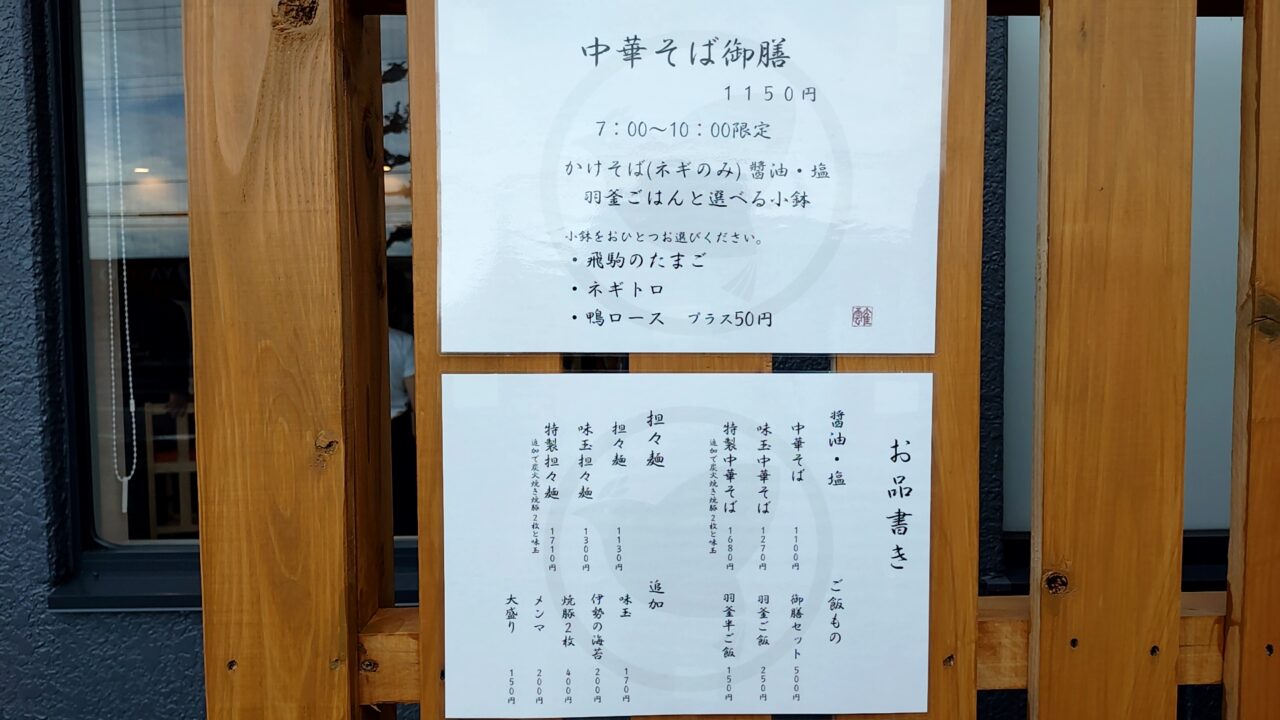 中華そば御膳
１１５０円
７：００～１０：００限定
かけそば(ネギのみ) 醬油・塩
羽釜ごはんと選べる小鉢
小鉢をおひとつお選びください。
・飛駒のたまご
・ネギトロ
・鴨ロース　プラス50円
お品書き
醬油・塩
中華そば　１１００円
味玉中華そば　１２７０円
特製中華そば　１６８０円
追加で炭火焼き焼豚２枚と味玉
担々麺
担々麺　１１３０円
味玉担々麺　１３００円
特製担々麺　１７１０円
追加で炭火焼き焼豚２枚と味玉
ご飯もの
御膳セット　５００円
羽釜ご飯　２５０円
羽釜半ご飯　１５０円
追加
味玉　１７０円
伊勢の海苔　２００円
焼豚２枚　４００円
メンマ　２００円
大盛り　１５０円